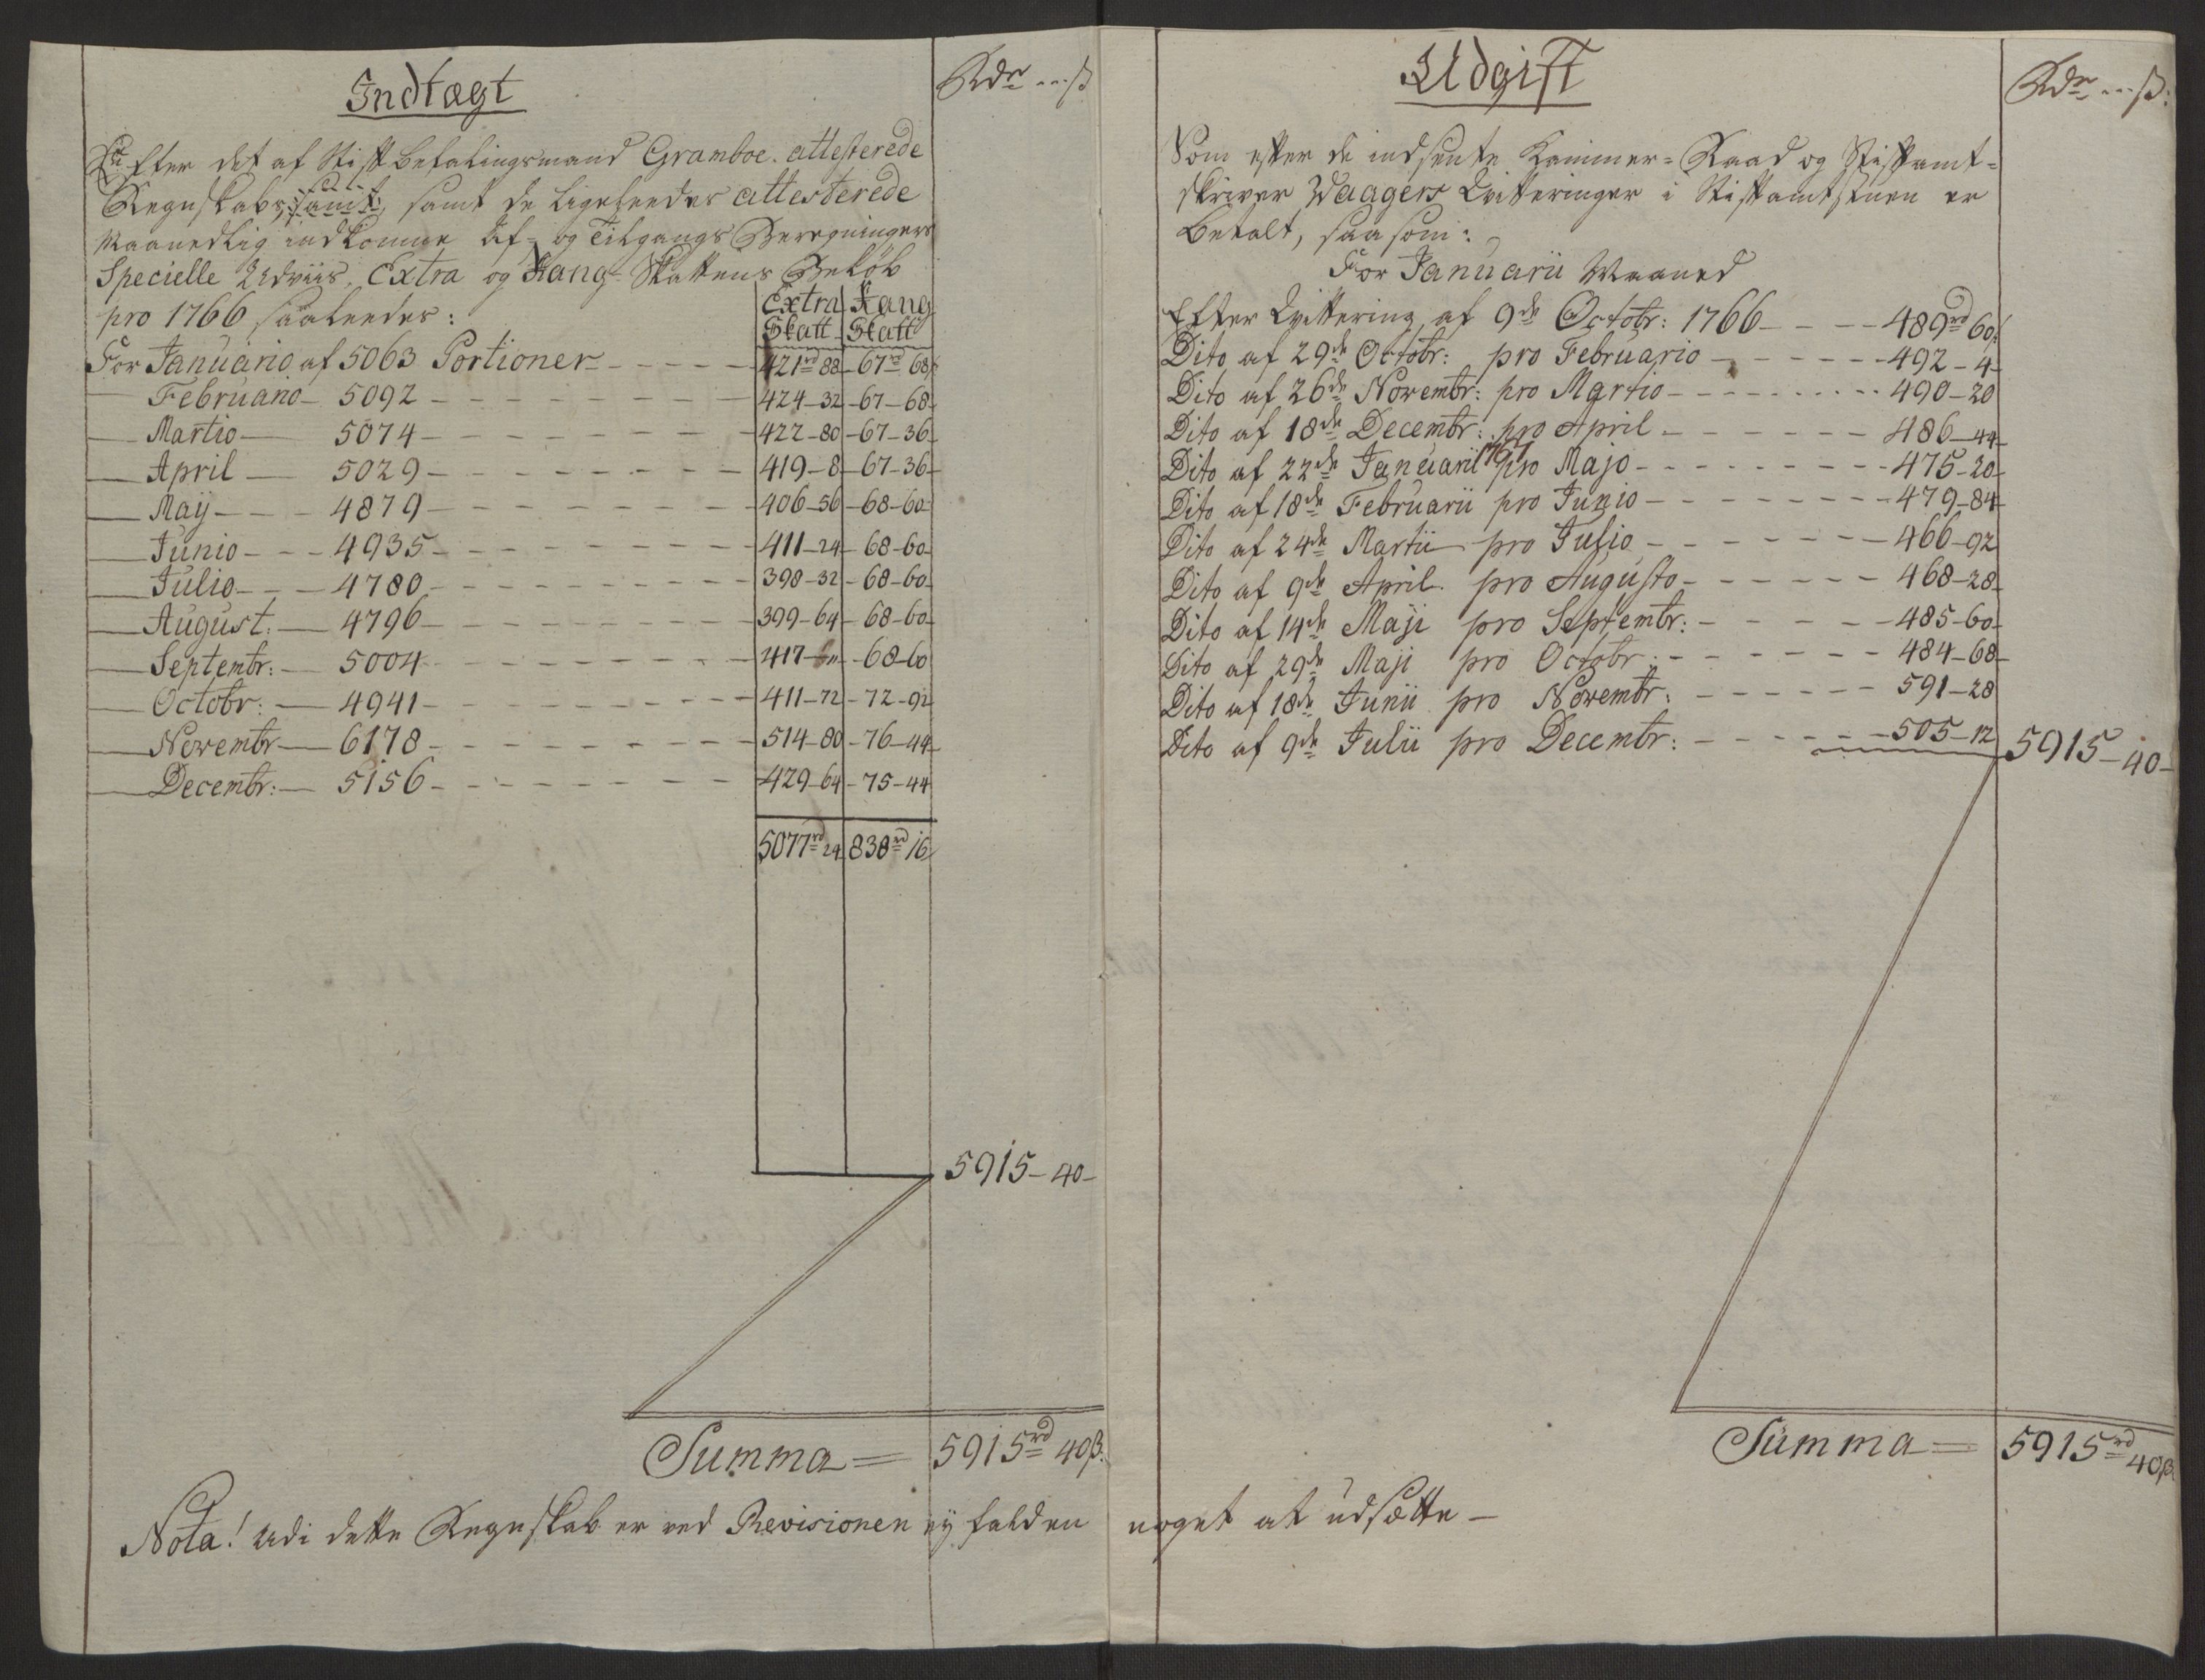 Indtægt
Rdr --- ß
Efter det af Stiftbefalingsmand Gramboe attesterede
Regnskab, samt de ligeleedes attesterede
Maanedlig indkomne Af- og Tilgangs Beregningers
Specielle Udviis, Extra og Rang-Skattens Beløb
pro 1766 saaleedes:
Extra Skatt Rang Skatt
For Januario af 5063 Portioner - - - - 421rd 88 - 67rd 68
— Februario - 5092 - - - - 424-32 - 67-68
— Martio — 5074 - - - - 422-80 - 67-36
— April — 5029 - - - - 419-8 - 67-36
— Maij - - - 4879 - - - - 406-56 - 68-60
— Junio - - - 4935 - - - - 411-24 - 68-60
— Julio - - - 4780 - - - - 398-32 - 68-60
— August. — 4796 - - - - 399-64 - 68-60
— Septembr: — 5004 - - - - 417 - 68-60
— Octobr: — 4941 - - - - 411-72 - 72-92
— Novembr — 6178 - - - - 514-80 - 76-44
— Decembr: — 5156 - - - - 429-64 - 75-44
5077rd 24 838rd 16
5915-40-
Summa = 5915rd 40ß.
Udgift
Rdr --- ß:
Som efter de indsente Kammer-Raad og Stiftamt-
skriver Waagers Qvitteringer i Stiftamtstuen er
Betalt, saasom:
For Januarii Maaned
Efter Qvittering af 9de Octobr: 1766 - - - 489rd 60ß
Dito af 29de Octobr: pro Februario - - - - 492-4-
Dito af 26de Novembr: pro Martio - - - - 490-20
Dito af 18de Decembr: pro April - - - - 486-44
Dito af 22de Januarii 1767 pro Majo - - - - 475-20-
Dito af 18de Februarii pro Junio - - - - 479-84-
Dito af 24de Martii pro Julio - - - - 466-92
Dito af 9de April. pro Augusto - - - - 468-28-
Dito af 14de Maji pro Septembr: - - - - 485-60-
Dito af 29de Maji pro Octobr. - - - - 484-68-
Dito af 18de Junii pro Novembr: - - - - 591-28
Dito af 9de Julii pro Decembr: - - - - 505-12
5915-40-
Summa = 5915rd 40ß.
Nota! Udi dette Regnskab er ved Revisionen ej falden noget at udsætte —